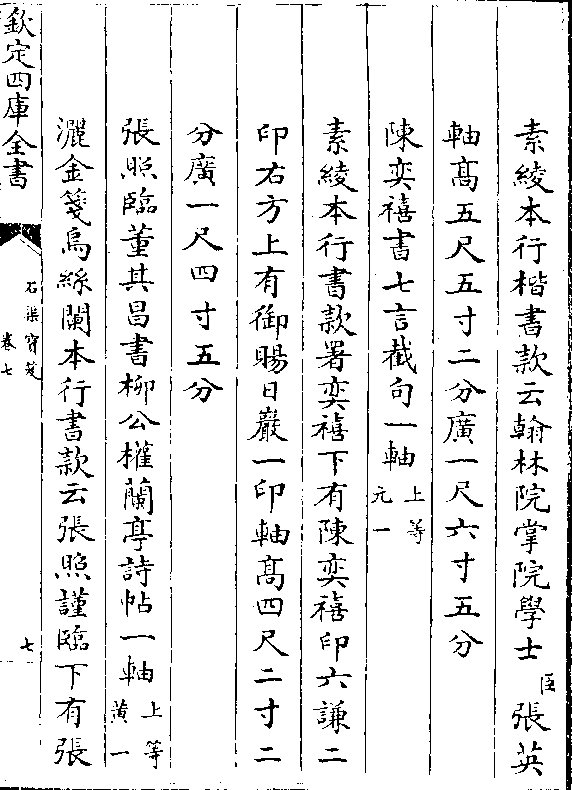 素綾本行楷書款云翰林院掌院學士臣張英
軸髙五尺五寸二分廣一尺六寸五分
陳奕禧書七言截句一軸上等元一
素綾本行書款署奕禧下有陳奕禧印六謙二
印右方上有御賜日嚴一印軸髙四尺二寸二
分廣一尺四寸五分
張照臨董其昌書柳公權蘭亭詩帖一軸上等黄一
灑金箋烏絲闌本行書款云張照謹臨下有張
欽定四庫全書
石渠寳笈
卷七
七